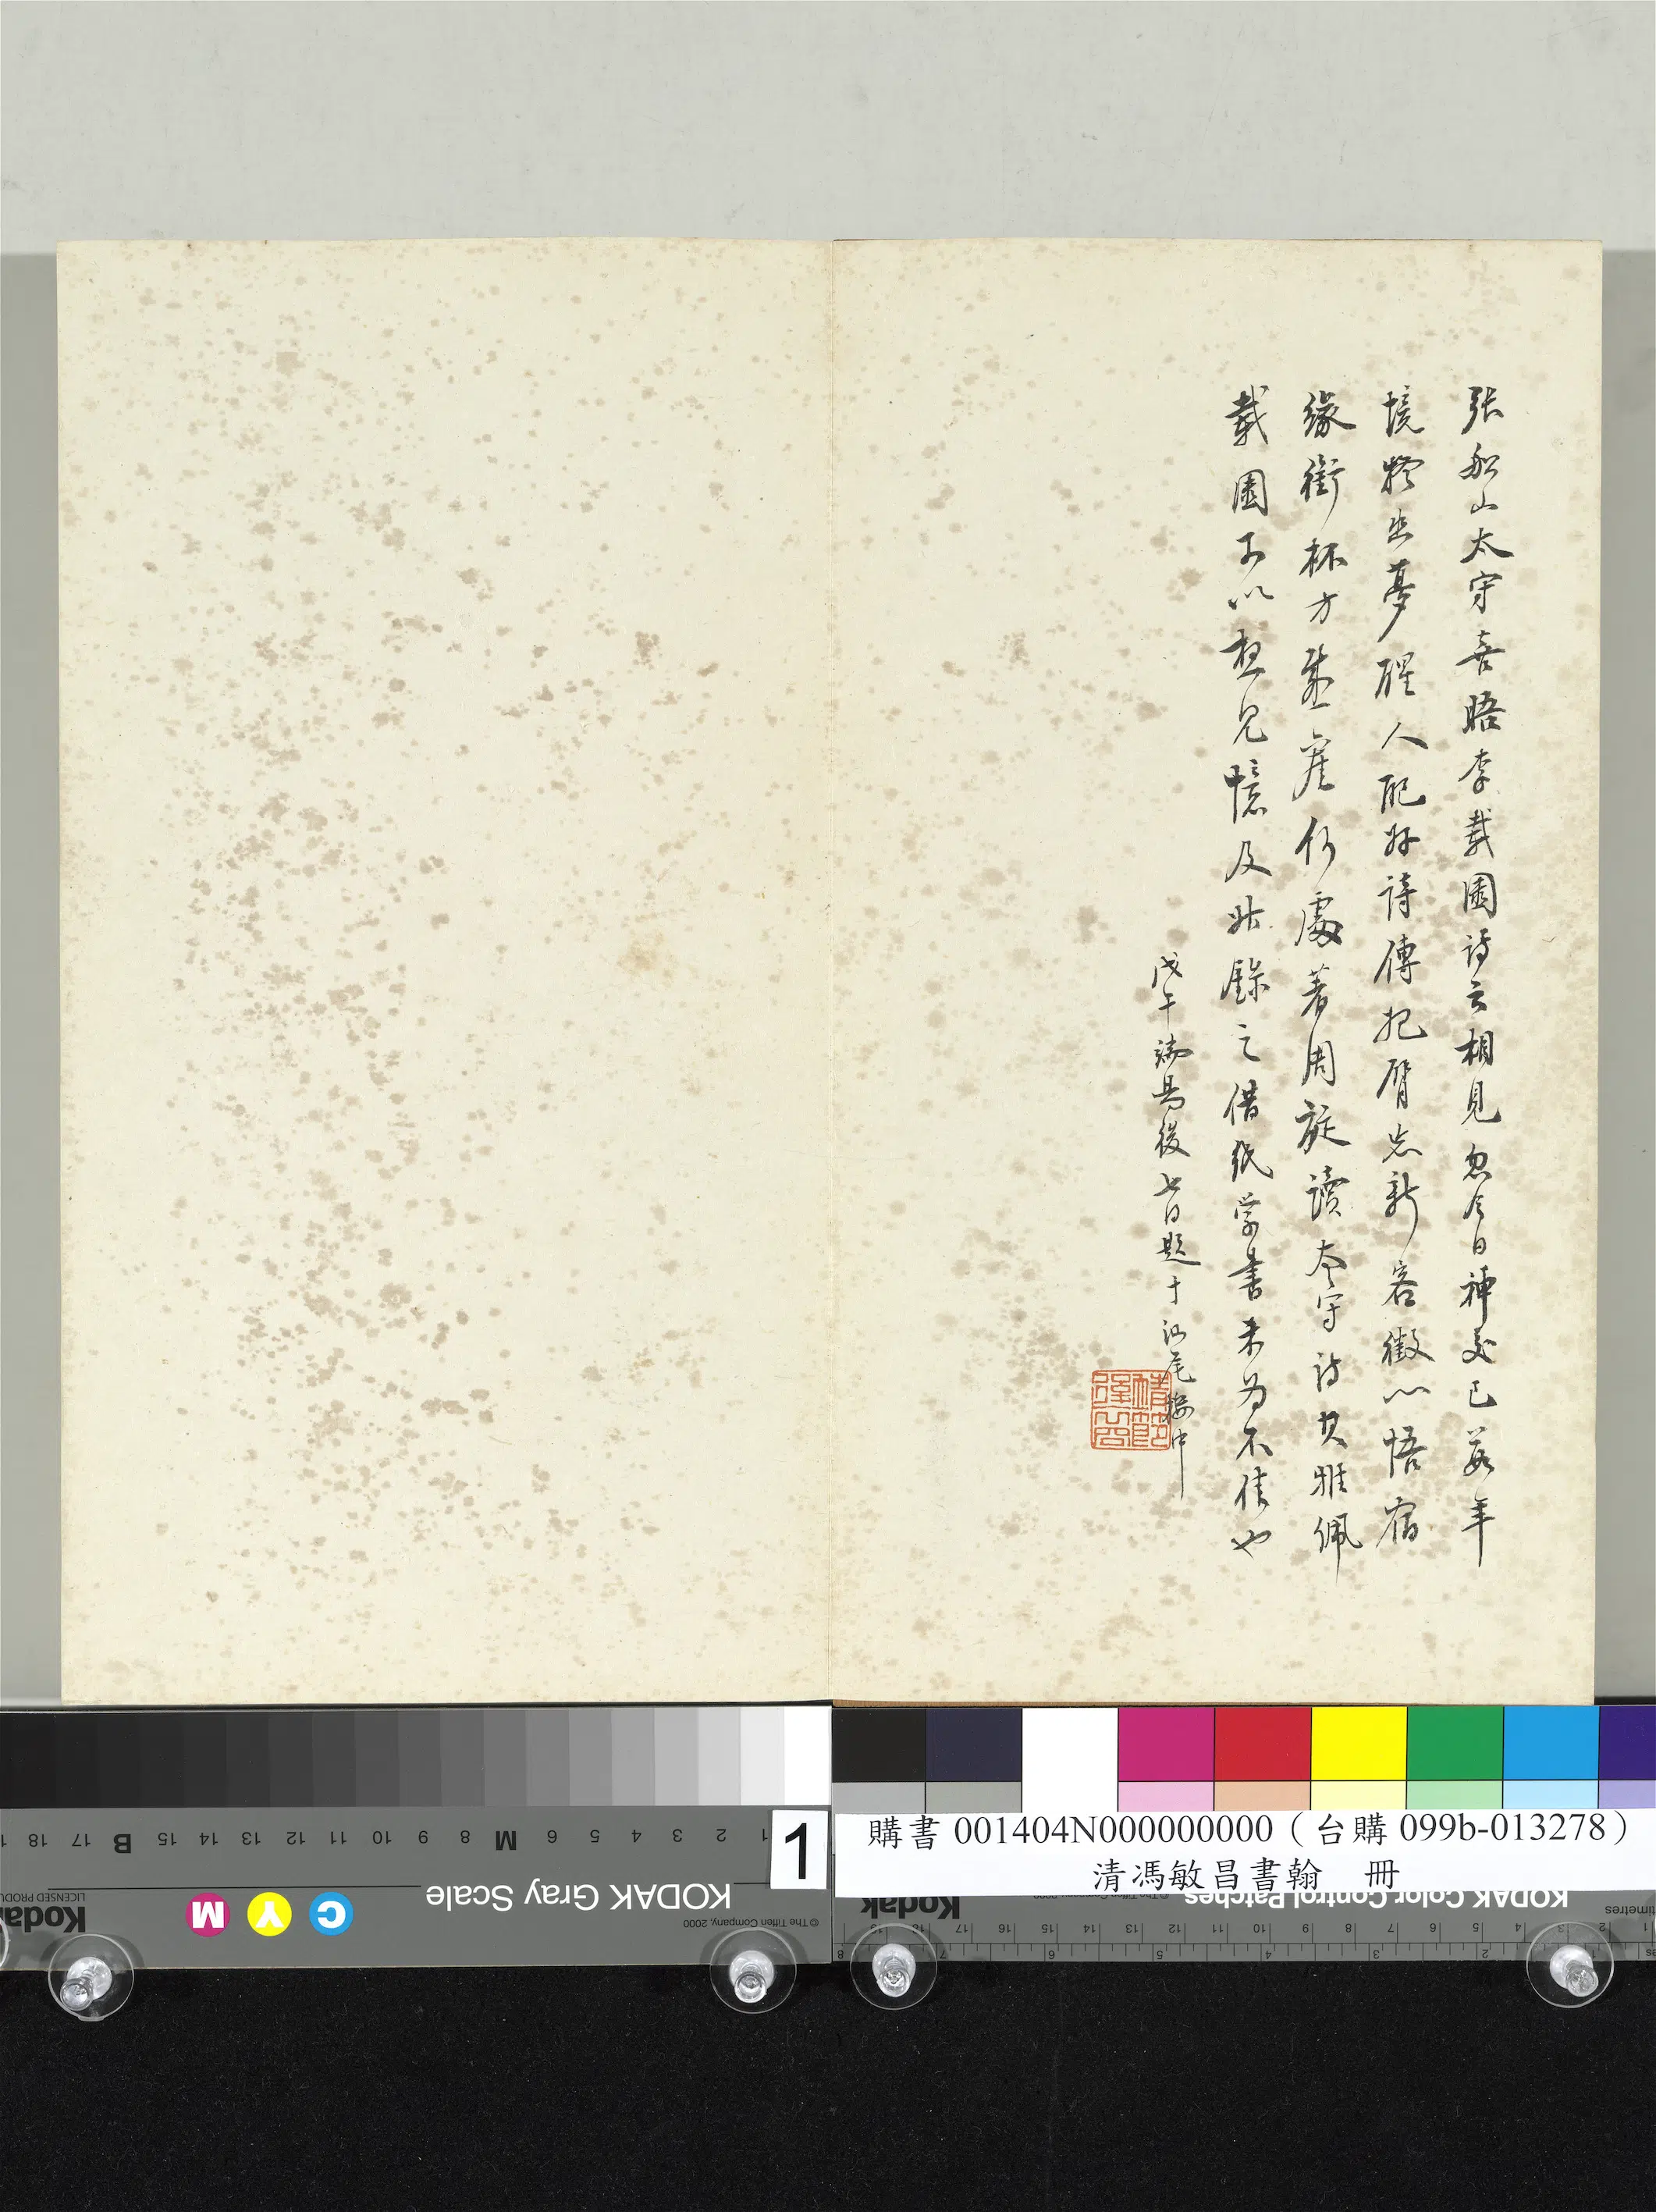 張船山太守喜晤李載園詩云相見忽今日神交已若年
境好出夢醒人配好詩傳把臂忘新客徵心悟宿
緣銜杯方感座何處著周旋讀太守詩其雅佩
載園可以想見憶及此錄之借紙學書未為不佳也
戊午端陽後七日題于江尾樓中
KODAK Gray Scale
© The Tiffen Company, 2000
LICENSED PRODU
Kodak
C Y M
1 2 3 4 5 6 M 8 9 10 11 12 13 14 15 B 17 18
1
購書 001404N000000000（台購 099b-013278）
清馮敏昌書翰 冊
KODAK Color Control Patches
Kodak